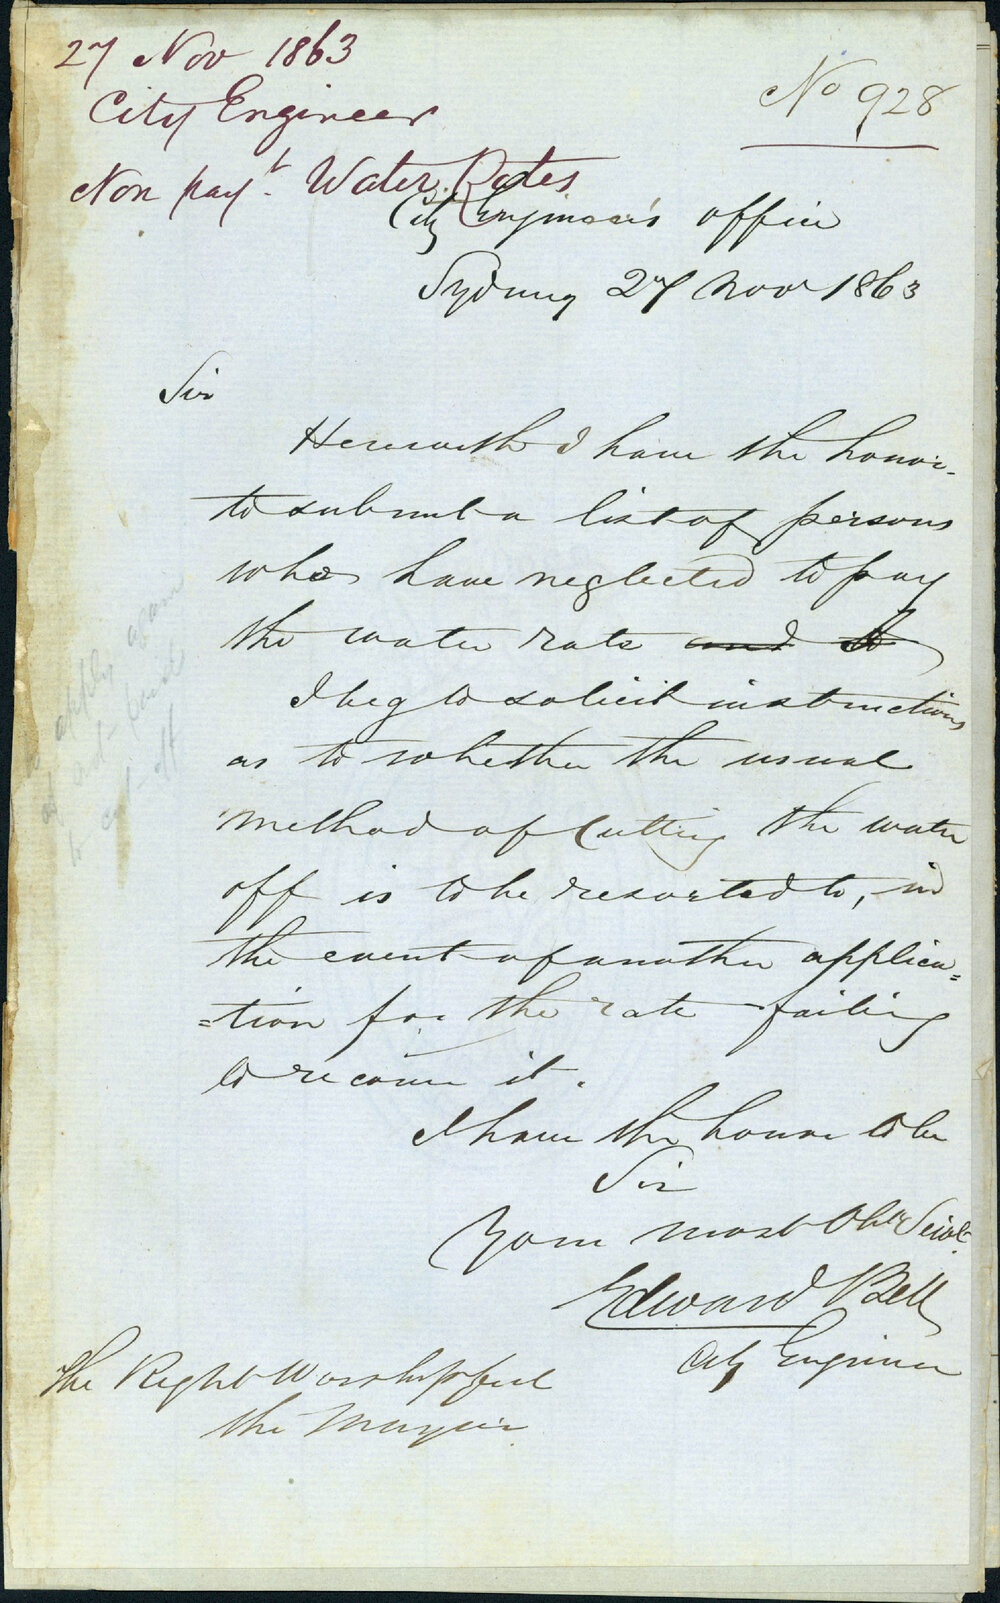 27 Nov 1863
City Engineer
Non payt. Water Rates
No 928
City Engineer's office
Sydney 27 Nov 1863
Sir
Herewith I have the honor
to submit a list of persons
who have neglected to pay
the water rate and to
I beg to solicit instructions
as to whether the usual
method of Cutting the water
off is to be resorted to, in
the event of another applica=
=tion for the rate failing
to recover it.
I have the honor to be
Sir
Your most Obt Servt
Edward Bell
City Engineer
The Right Worshipful
the Mayor
to apply again
if not paid
to cut off